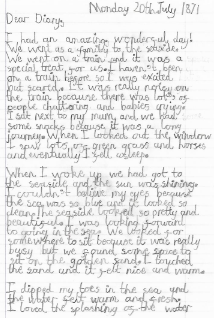 Monday 20th July 1871
Dear Diary,
I had an amazing wonderful day!
We went as a family to the seaside.
We went on a train and it was a
special treat for us. I haven't been
on a train before so I was excited
but scared. It was really noisy on
the train because there was lots of
people chatting and babies crying.
I sat next to my mum and we had
some snacks because it was a long
journey. When I looked out the window
I saw lots of green grass and horses
and eventually I fell asleep.
When I woke up we had got to
the seaside and the sun was shining.
I couldn't believe my eyes because
the sea was so blue and it looked so
clean. The seaside looked so pretty and
beautiful. I was looking forward
to going in the sea. We looked for
somewhere to sit because it was really
busy but we found some space to
sit on the golden sand. I touched
the sand and it felt nice and warm.
I dipped my toes in the sea and
the water felt warm and fresh.
I loved the splashing of the water